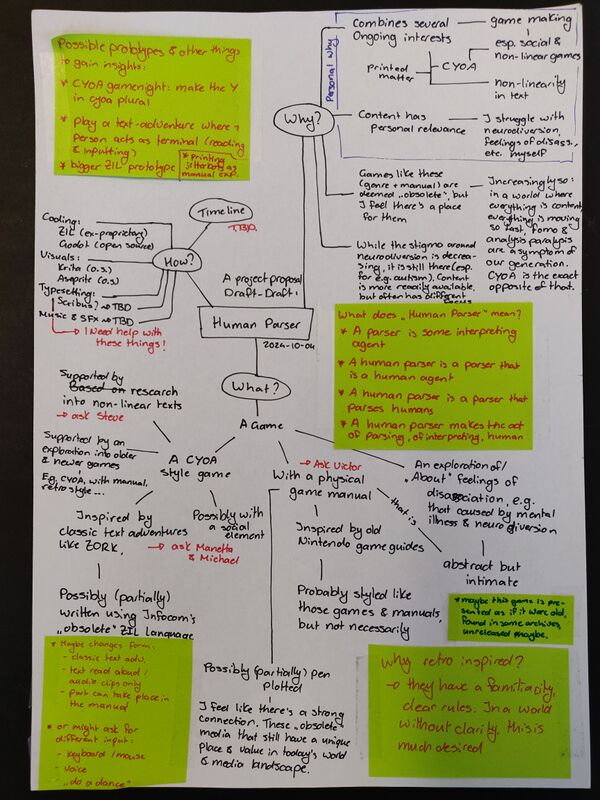 Possible prototypes & other things
to gain insights:
* CYOA gamenight: make the Y
in cyoa plural
* play a text-adventure where 1
person acts as terminal (reading
& inputting)
* bigger ZIL prototype
* printing
jitterbots as
manual exp.
Personal Why
Why?
Combines several
Ongoing interests
game making
esp. social &
non-linear games
printed
matter
CYOA
non-linearity
in text
Content has
personal relevance
I struggle with
neurodiversion,
feelings of disass.,
etc. myself
Games like these
(genre + manual) are
deemed "obsolete", but
I feel there's a place
for them
Increasingly so:
in a world where
everything is content,
everything is moving
so fast, fomo &
analysis paralysis
are a symptom of
our generation.
CYOA is the exact
opposite of that.
While the stigma around
neurodiversion is decrea-
sing, it is still there (esp.
for e.g. autism). Content
is more readily available,
but often has different
focus
Timeline
TBD.
How?
Coding:
ZIL (ex-proprietary)
Godot (open source)
Visuals:
Krita (o.s.)
Aseprite (o.s.)
Typesetting:
Scribus? → TBD
Music & SFX → TBD
→ I need help with
these things!
A project proposal
Draft-Draft:
Human Parser
2024-10-04
What does "Human Parser" mean?
* A parser is some interpreting
agent
* A human parser is a parser that
is a human agent
* A human parser is a parser that
parses humans
* A human parser makes the act
of parsing, of interpreting, human
What?
A Game
Supported by
Based on research
into non-linear texts
→ ask Steve
Supported by an
exploration into older
& newer games
E.g. cyoa, with manual,
retro style ...
A CYOA
style game
Inspired by
classic text adventures
like ZORK.
Possibly with
a social
element
→ ask Manetta
& Michael
Possibly (partially)
written using Infocom's
"obsolete" ZIL Language
→ Ask Victor
With a physical
game manual
Inspired by old
Nintendo game guides
Probably styled like
those games & manuals,
but not necessarily
Possibly (partially) pen
plotted
I feel like there's a strong
connection. These "obsolete"
media that still have a unique
place & value in today's world
& media landscape.
An exploration of/
"About" feelings of
disassociation, e.g.
that caused by mental
illness & neurodiversion
that is
abstract but
intimate
* maybe this game is pre-
sented as if it were old,
found in some archives,
unreleased maybe.
* Maybe changes form:
- classic text adv.
- text read aloud /
audio clips only
- part can take place in
the manual
* or might ask for
different input:
- keyboard / mouse
- voice
- "do a dance"
Why retro inspired?
→ they have a familiarity,
clear rules. In a world
without clarity, this is
much desired